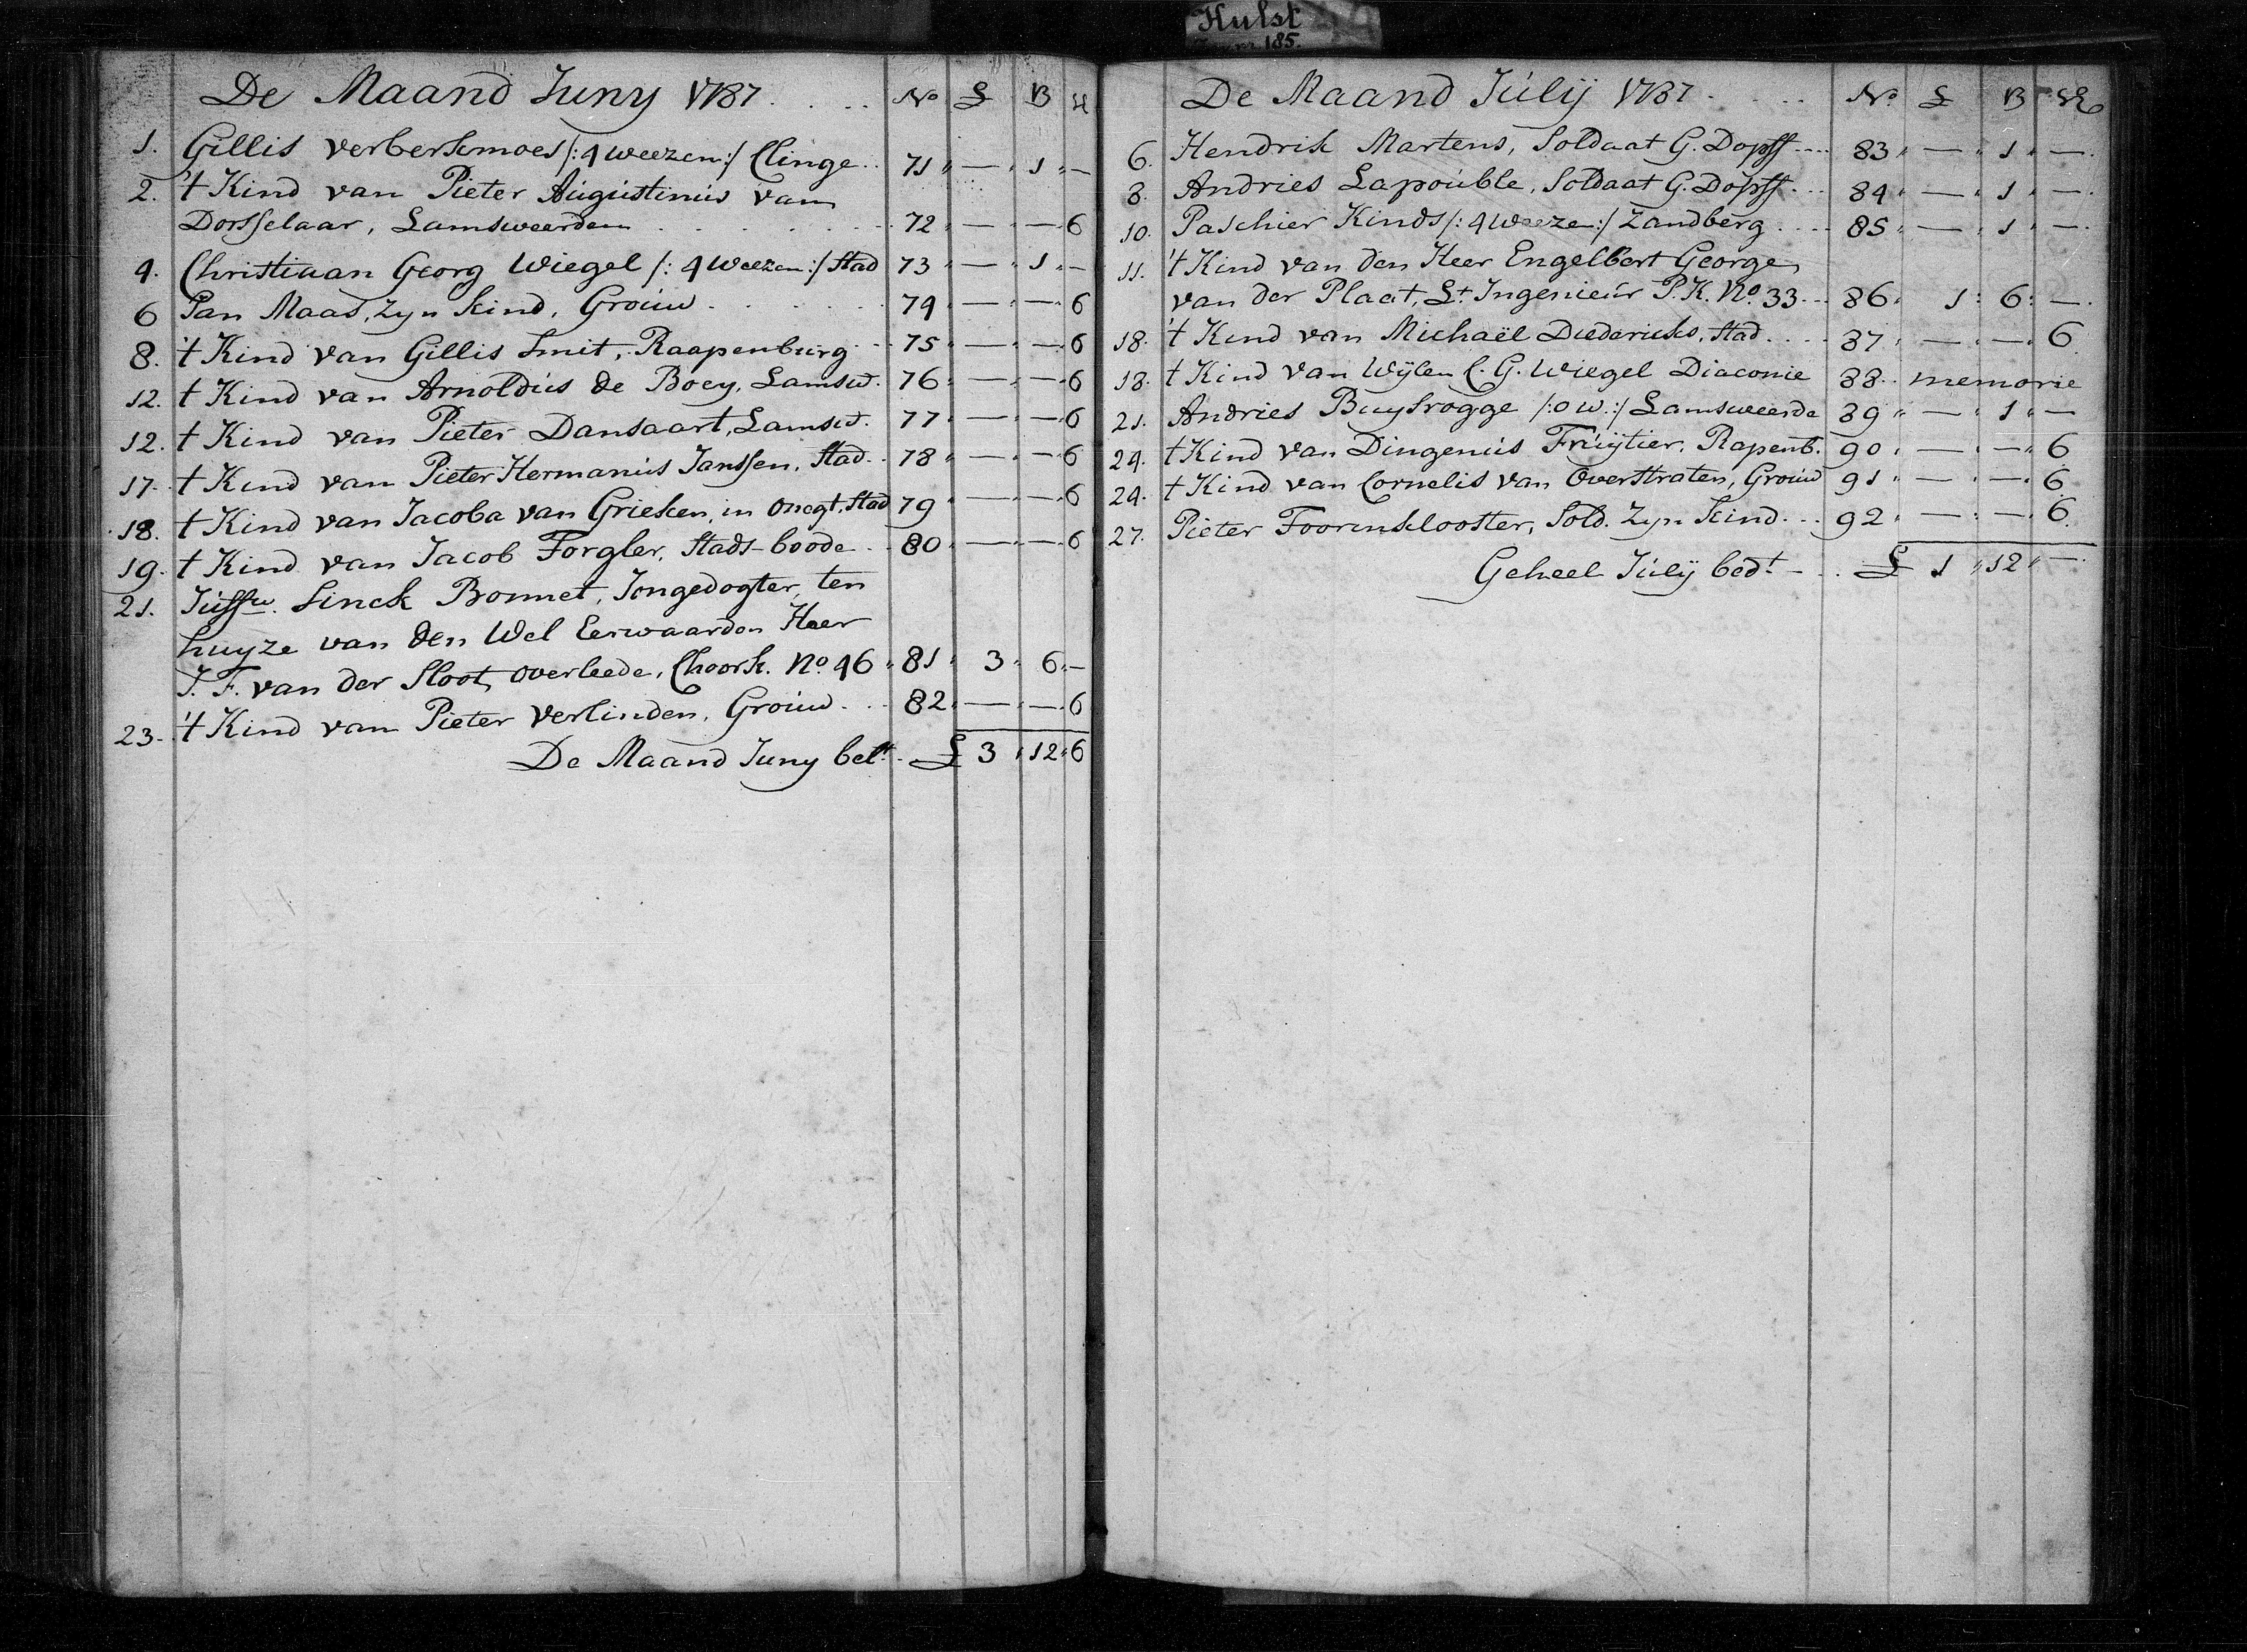 Hulst
185.
De Maand Juny 1787 . . . . No £ ß
1. Gillis Verberkmoes /: 4 Weezen :/ Clinge .. 71 " — " 1 " —
2. 't Kind van Pieter Augustinus van
Dorsselaar, Lamsweerden . . . . . . . 72 " — " — " 6
4. Christiaan Georg Wiegel /: 4 Weezen :/ Stad 73 " — " 1 " —
6 Jan Maas, Zyn kind, Grouw . . . . . 74 " — " — " 6
8. 't Kind van Gillis Smit, Raapenburg .. 75 " — " — " 6
12. t Kind van Arnoldus de Boey, Lamsw. 76 " — " — " 6
12. t Kind van Pieter Dansaart, Lamsw. 77 " — " — " 6
17. t Kind van Pieter Hermanus Janssen, Stad .. 78 " — " — " 6
18. t Kind van Jacoba van Grieken, in onegt, Stad 79 " — " — " 6
19. t Kind van Jacob Forgler, Stads-boode .. 80 " — " — " 6
21. Juffw. Sinck Bonnet, Jongedogter, ten
huyze van den Wel Eerwaarden Heer
J. F. van der Sloot, overleede, Choork. No. 46 " 81 " 3 " 6 " —
23. 't Kind van Pieter Verlinden, Grouw . . . 82 " — " — " 6
De Maand Juny belt. . £ 3 " 12 " 6
De Maand Júlÿ 1787 . . . . No. £ ß
6. Hendrik Martens, Soldaat G. Dopff .... 83 " — " 1 " —
8. Andries Lapoúble, Soldaat G. Dopff ... 84 " — " 1 " —
10. Paschier Kinds /: 4 Weezen :/ Zandberg .... 85 " — " 1 " —
11. 't Kind van den Heer Engelbert George
van der Plaat, Lt. Ingenieúr P. K. No. 33 ... 86 " 1 : 6 : —
18. 't Kind van Michaël Diedericks, Stad .... 87 " — " — " 6
18. t Kind van Wÿlen C. G. Wiegel Diaconie 88 .. memorie
21. Andries Buysrogge /: 0 W. :/ Lamsweerde 89 " — " 1 " —
24. t Kind van Dingenus Frúÿtier, Rapenb. 90 " — " — " 6
24. t Kind van Cornelis van Overstraten, Grouw 91 " — " — " 6
27. Pieter Foorenklooster, Sold. Zyn Kind .. 92 " — " — " 6
Geheel Júlÿ bedt. — . £ 1 " 12 " —